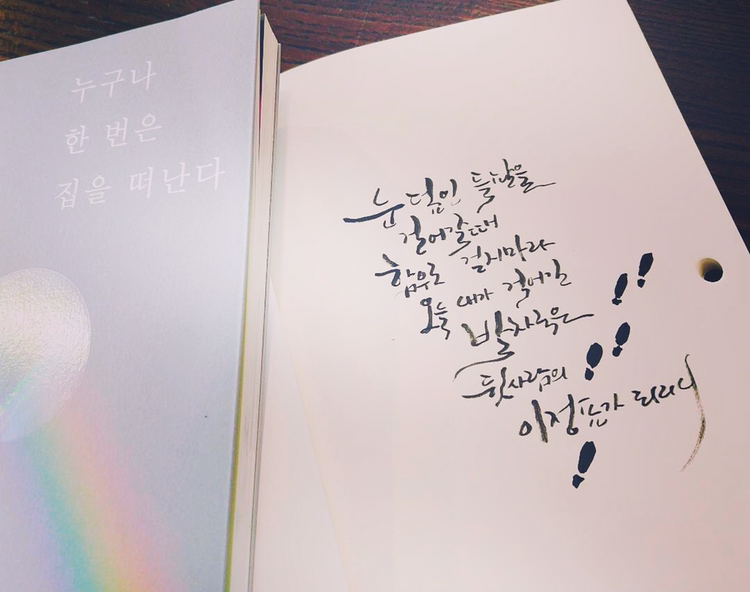 누구나
한 번은
집을 떠난다
눈 덮인 들판을
걸어갈때
함부로 걷지마라
오늘 내가 걸어간
발자국은
뒷사람의
이정표가 되리니